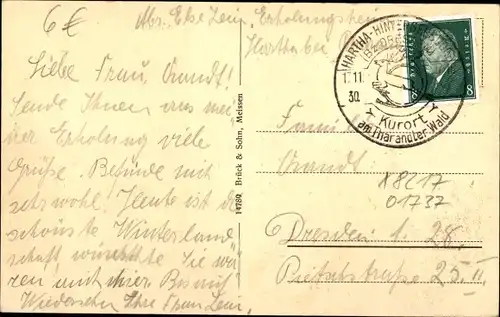 6 €
Abs. Else Leni, Erholungsheim
Hartha bei
Liebe Frau, Brandt!
Sende Ihnen aus mei
ner Erholung viele
Grüße. Befinde mich
sehr wohl! Heute ist die
schönste Winterland
schaft wünschte Sie wä
ren mit hier. Bis auf
Wiedersehn Ihre Frau Leni.
14780 Brück & Sohn, Meissen
HARTHA-HINTER
(BZ. DRESD
1. 11
30
Kurort
am Tharandter Wald
Deutsches Reich
8 8
Familie
Brandt
X8L17
01737
Dresden A. 28.
25 II